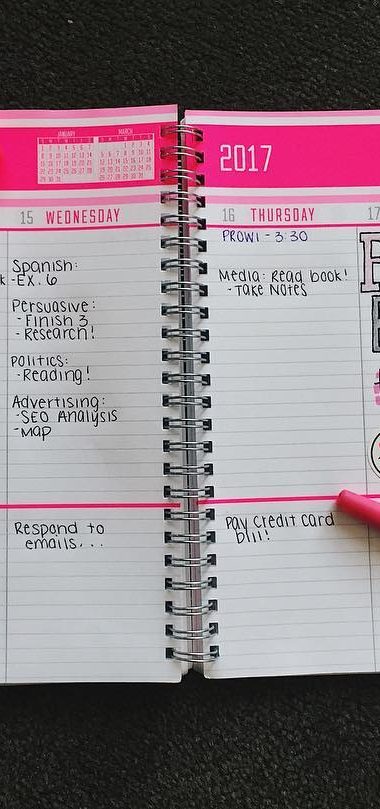 JANUARY
MARCH
2017
15 WEDNESDAY
16 THURSDAY
17
PROWI - 3:30
Spanish:
-EX. 6
Persuasive:
- Finish 3
- Research!
Politics:
- Reading!
Advertising:
-SEO Analysis
-Map
Media: Read book!
- Take Notes
Respond to
emails...
Pay credit card
bill!